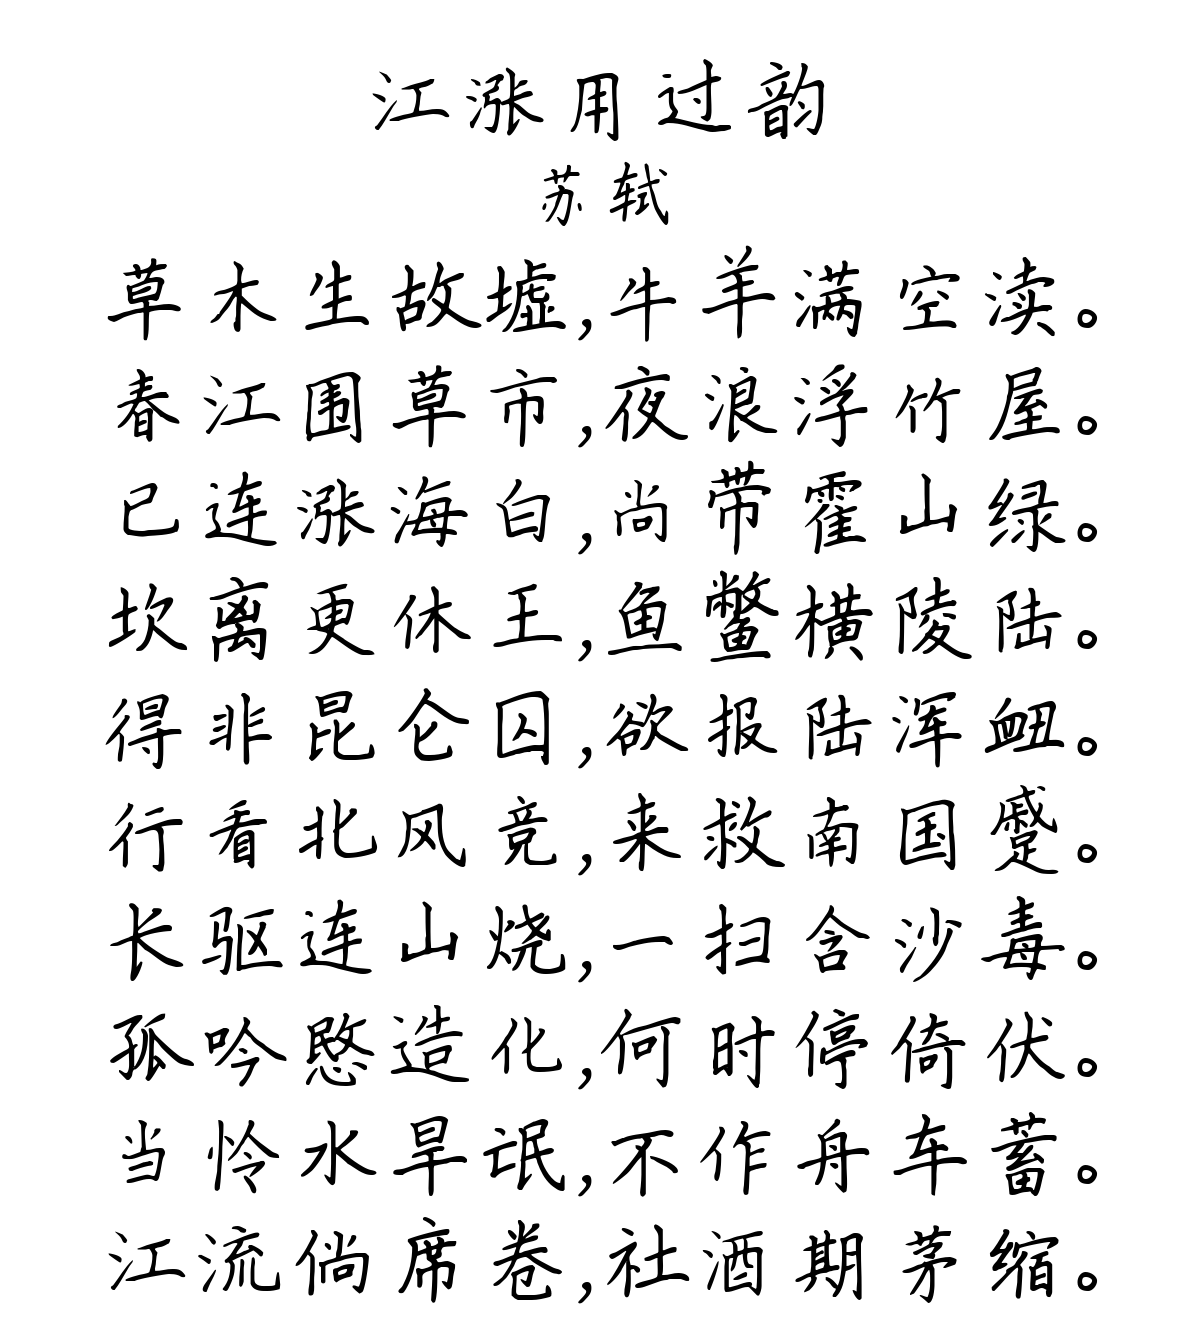 江涨用过韵
苏轼
草木生故墟,牛羊满空渎。
春江围草市,夜浪浮竹屋。
已连涨海白,尚带霍山绿。
坎离更休王,鱼鳖横陵陆。
得非昆仑囚,欲报陆浑衄。
行看北风竞,来救南国蹙。
长驱连山烧,一扫含沙毒。
孤吟愍造化,何时停倚伏。
当怜水旱氓,不作舟车蓄。
江流倘席卷,社酒期茅缩。